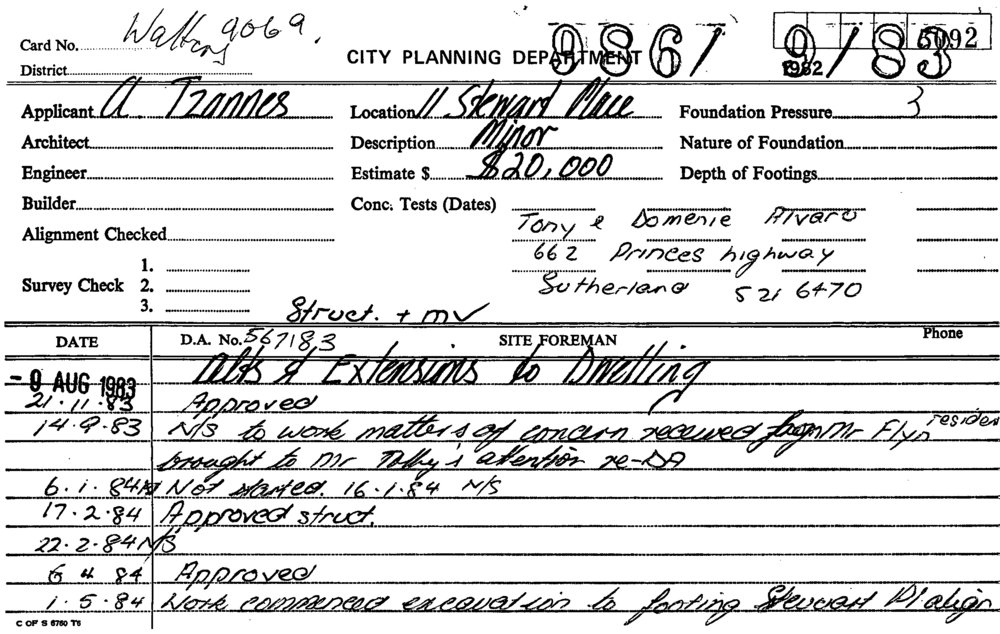 Card No. 9069.
CITY PLANNING DEPARTMENT 9861 9/83 5092
1982
District
Applicant A. Tzannes Location 11 Steward Place Foundation Pressure 3
Architect Description Minor Nature of Foundation
Engineer Estimate $ $20,000 Depth of Footings
Builder Conc. Tests (Dates)
Tony & Domenie Alvaro
Alignment Checked
662 Princes highway
1.
Survey Check 2. Sutherland 521 6470
3.
Struct. + mv
DATE D.A. No. 567183 SITE FOREMAN Phone
- 9 AUG 1983 Alts & Extensions to Dwelling
21.11.83 Approved
14.9.83 N/S to work matters of concern received from Mr Flyn resident
brought to Mr attention re-DA
6.1.84 Not started. 16.1.84 N/S
17.2.84 Approved struct.
22.2.84 N/S
6 4 84 Approved
1.5.84 Work commenced excavation to footing Stewart Pl align
C OF S 6760 T6